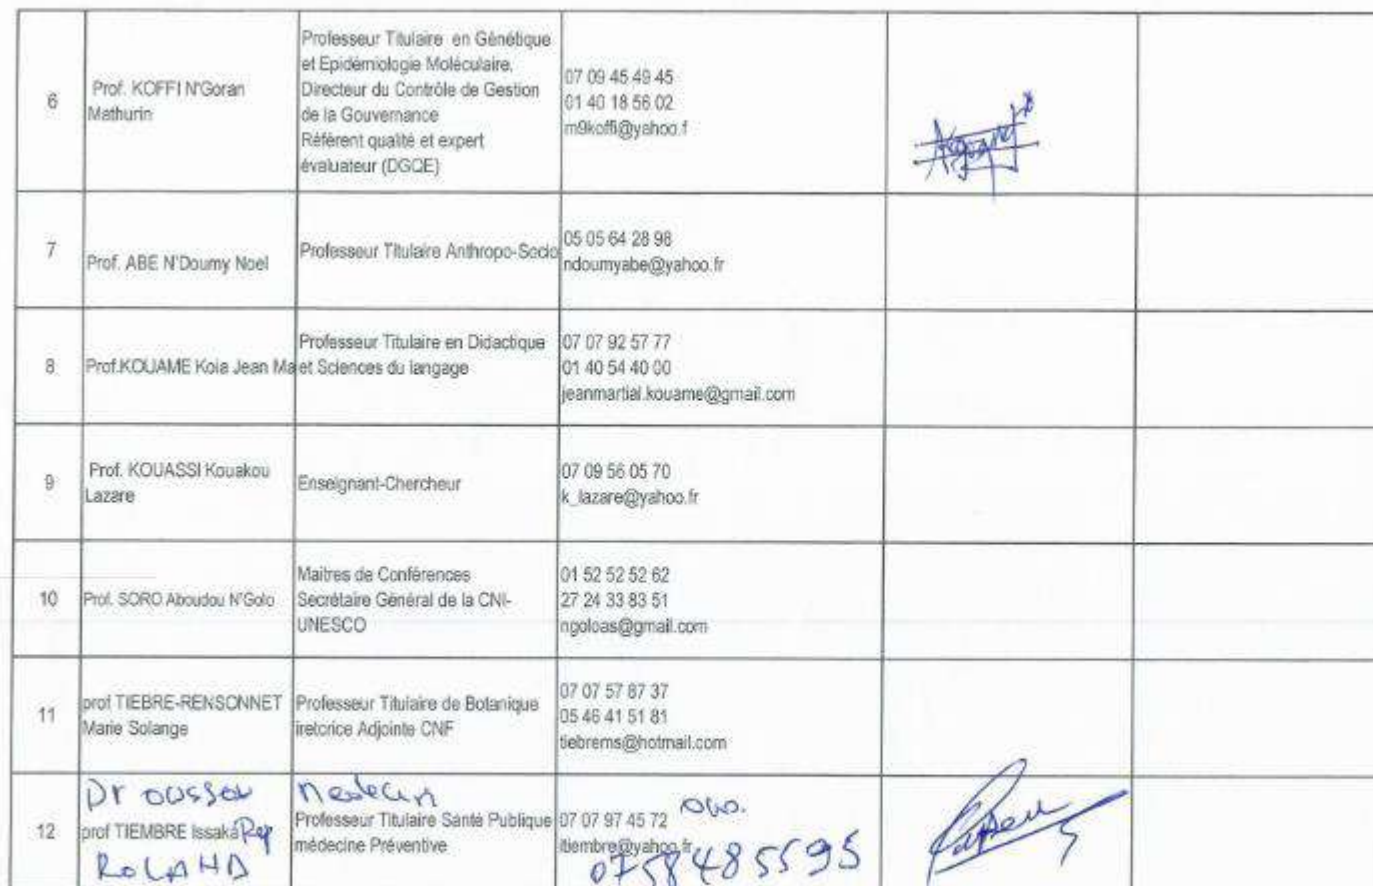 6
Prof. KOFFI N'Goran
Mathurin
Professeur Titulaire en Génétique
et Epidémiologie Moléculaire,
Directeur du Contrôle de Gestion
de la Gouvernance
Référent qualité et expert
évaluateur (DGQE)
07 09 45 49 45
01 40 18 56 02
m9koffi@yahoo.f
7
Prof. ABE N'Doumy Noel
Professeur Titulaire Anthropo-Socio
05 05 64 28 98
ndoumyabe@yahoo.fr
8
Prof.KOUAME Koia Jean Ma
Professeur Titulaire en Didactique
et Sciences du langage
07 07 92 57 77
01 40 54 40 00
jeanmartial.kouame@gmail.com
9
Prof. KOUASSI Kouakou
Lazare
Enseignant-Chercheur
07 09 56 05 70
k_lazare@yahoo.fr
10
Prof. SORO Aboudou N'Golo
Maitres de Conférences
Secrétaire Général de la CNI-
UNESCO
01 52 52 52 62
27 24 33 83 51
ngoloas@gmail.com
11
prof TIEBRE-RENSONNET
Marie Solange
Professeur Titulaire de Botanique
iretcrice Adjointe CNF
07 07 57 87 37
05 46 41 51 81
tiebrems@hotmail.com
12
Dr oussou
prof TIEMBRE Issaka Rep
RoLAND
Medecin
Professeur Titulaire Santé Publique
médecine Préventive
07 07 97 45 72
itiembre@yahoo.fr
0758485595